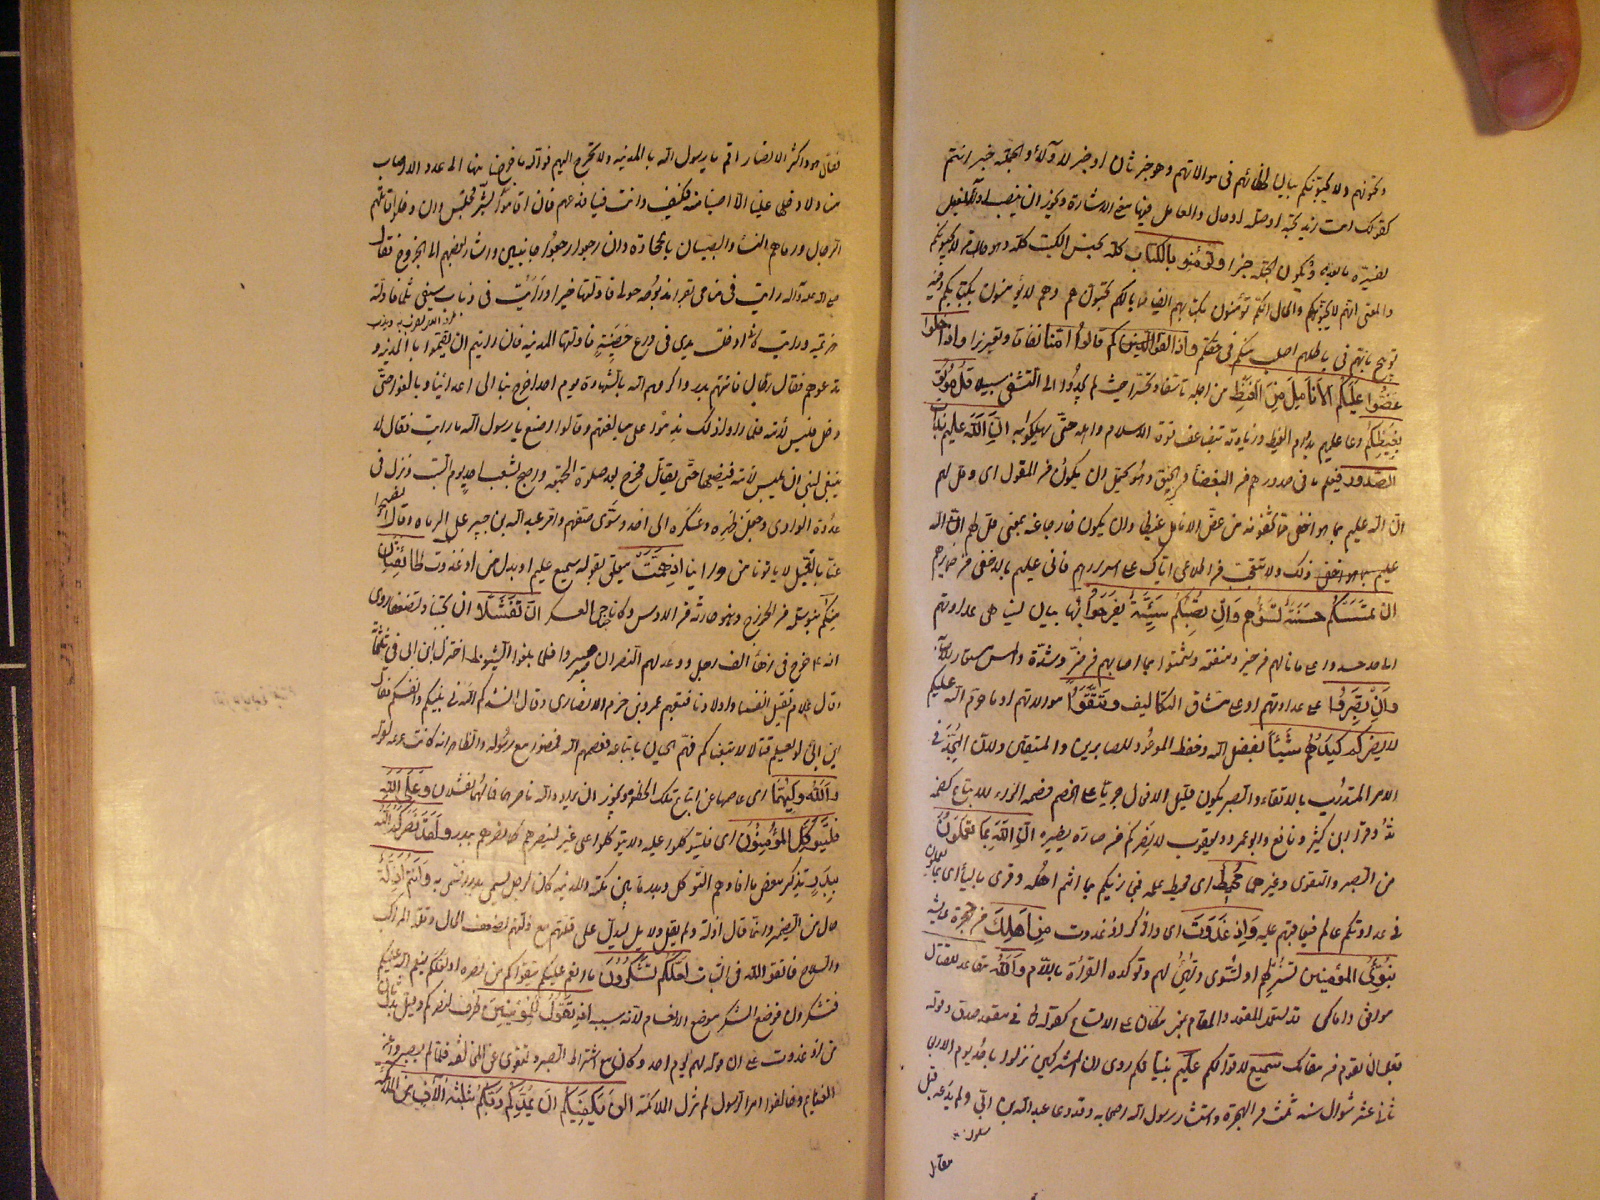 وتحبونهم ولا يحبونكم بيان لخطائهم فى موالاتهم وهو خبر ثان او خبر لاولاء والجملة خبر انتم
كقولك انت زيد تحبه او صلته او حال والعامل فيها معنى الاشارة ويجوز ان ينصب اولاء بفعل
يفسره ما بعده ويكون الجملة خبرا وتؤمنون بالكتاب كله بجنس الكتب كله وهو حال من لا يحبونكم
والمعنى انهم لا يحبونكم والحال انكم تؤمنون بكتابهم ايضا فما بالكم تحبونهم وهم لا يؤمنون بكتابكم وفيه
توبيخ بانهم فى باطلهم اصلب منكم فى حقكم واذا لقوكم قالوا امنا نفاقا وتغريرا واذا خلوا
عضوا عليكم الانامل من الغيظ من اجله تاسفا وتحسرا حيث لم يجدوا الى التشفى سبيلا قل موتوا
بغيظكم دعاء عليهم بدوام الغيظ وزيادته بتضاعف قوة الاسلام واهله حتى يهلكوا به ان الله عليم بذات
الصدور فيعلم ما فى صدورهم من البغضاء والحنق وهو يحتمل ان يكون من المقول اى وقل لهم
ان الله عليم بما هو اخفى مما تخفونه من عض الانامل غيظا وان يكون خارجا عنه بمعنى قل لهم ان الله
عليم بما هو اخفى ذلك ولا تتعجب من اطلاعى اياك على اسرارهم فانى عليم بالاخفى من ضمايرهم
ان تمسسكم حسنة تسؤهم وان تصبكم سيئة يفرحوا بها بيان لتناهى عداوتهم
الى حد حسدوا على ما نالهم من خير ومنفعة وشمتوا بما اصابهم من ضر وشدة والمس مستعار للاصابة
وان تصبروا على عداوتهم او على مشاق التكاليف وتتقوا موالاتهم او ما حرم الله عليكم
لا يضركم كيدهم شيئا بفضل الله وحفظ الموعود للصابرين والمتقين ولان المجد فى
الامر المتدرب بالاتقاء والصبر يكون قليل الانفعال جريا على الخصم وضمة الراء للاتباع كضمة
مد وقرا ابن كثير ونافع وابو عمرو ويعقوب لا يضركم من ضاره يضيره ان الله بما تعملون
من الصبر والتقوى وغيرهما محيط اى محيط علمه فيجازيكم بما انتم اهله وقرئ بالياء اى بما يعملون
فى عداوتكم عالم فيعاقبهم عليه واذ غدوت اى واذكر اذ غدوت من اهلك من حجرة عايشة
تبوئ المؤمنين تنزلهم او تسوى وتهيئ لهم ويؤكده القراءة باللام مقاعد للقتال
مواقف واماكن قد يستعمل المقعد والمقام بمعنى المكان على الاتساع كقوله تعالى فى مقعد صدق وقوله
قبل ان تقوم من مقامك سميع لاقوالكم عليم بنياتكم روى ان المشركين نزلوا باحد يوم الاربعاء
ثانى عشر شوال سنة ثلث من الهجرة فاستشار رسول الله اصحابه وقد دعا عبد الله بن ابى ولم يدعه قبل
فقال هو واكثر الانصار اقم يا رسول الله بالمدينة ولا تخرج اليهم فوالله ما خرجنا منها الى عدو الا اصاب
منا ولا دخل علينا الا اصبنا منه فكيف وانت فينا فدعهم فان اقاموا اقاموا بشر محبس وان دخلوا قاتلهم
الرجال ورماهم النساء والصبيان بالحجارة وان رجعوا رجعوا خائبين واشار بعضهم الى الخروج فقال
صلى الله عليه وآله رايت فى منامى بقرا مذبوحة حولى فاولتها خيرا ورايت فى ذباب سيفى ثلما فاولته
هزيمة ورايت كانى ادخلت يدى فى درع حصينة فاولتها المدينة فان رايتم ان تقيموا بالمدينة و
تدعوهم فقال رجال فاتتهم بدر واكرمهم الله بالشهادة يوم احد اخرج بنا الى اعدائنا وبالغوا حتى
دخل فلبس لأمته فلما راوا ذلك ندموا على مبالغتهم وقالوا اصنع يا رسول الله ما رايت فقال لا
ينبغى لنبى ان يلبس لأمته فيضعها حتى يقاتل فخرج بعد صلوة الجمعة واصبح بشعب احد يوم السبت ونزل فى
عدوة الوادى وجعل ظهره وعسكره الى احد وسوى صفهم وامر عبد الله بن جبير على الرماة وقال انضحوا
عنا بالنبل لا ياتونا من ورائنا اذ همت متعلق بقوله سميع عليم او بدل من اذ غدوت طائفتان
منكم بنو سلمة من الخزرج وبنو حارثة من الاوس وكانا جناحى العسكر ان تفشلا ان تجبنا وتضعفا روى
انه عم خرج فى زهاء الف رجل ووعد لهم النصر ان صبروا فلما بلغوا الشوط اختزل ابن ابى فى ثلثمائة
وقال علام نقتل انفسنا واولادنا فتبعهم عمرو بن حزم الانصارى وقال انشدكم الله فى نبيكم وانفسكم فقال
ابن ابى لو نعلم قتالا لاتبعناكم فهم الحيان باتباعه فعصمهم الله فمضوا مع رسوله والظاهر انه كانت عزيمة لقوله
والله وليهما اى عاصمهما عن اتباع تلك الخطرة ويجوز ان يراد والله ناصرهما فما لهما يفشلان وعلى الله
فليتوكل المؤمنون اى فليتوكلوا عليه ولا يتوكلوا على غيره لينصرهم كما نصرهم ببدر ولقد نصركم الله
ببدر تذكير ببعض ما افادهم التوكل وبدر ما بين مكة والمدينة كان لرجل يسمى بدرا فسمى به وانتم اذلة
حال من الضمير وانما قال اذلة ولم يقل ذلايل ليدل على قلتهم مع ذلتهم لضعف الحال وقلة المراكب
والسلاح فاتقوا الله فى الثبات لعلكم تشكرون ما انعم عليكم بتقواكم من نصره او لعلكم ينعم الله عليكم
فتشكرون فوضع الشكر موضع الانعام لانه سببه اذ تقول للمؤمنين ظرف لنصركم وقيل بدل ثان
من اذ غدوت على ان قوله لهم يوم احد وكان مع اشتراط الصبر والتقوى عن المخالفة فلما لم يصبروا عن
الغنايم وخالفوا امر الرسول لم تنزل الملائكة الن يكفيكم ان يمدكم ربكم بثلثة الاف من الملائكة